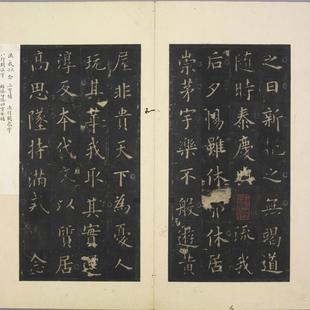 之日新挹之無竭道
隨時泰慶與流我
后夕惕雖休弗休居
崇茅宇樂不般遊黃
屋非貴天下為憂人
玩其華我取其實還
淳反本代文以質居
高思墜持滿戒念